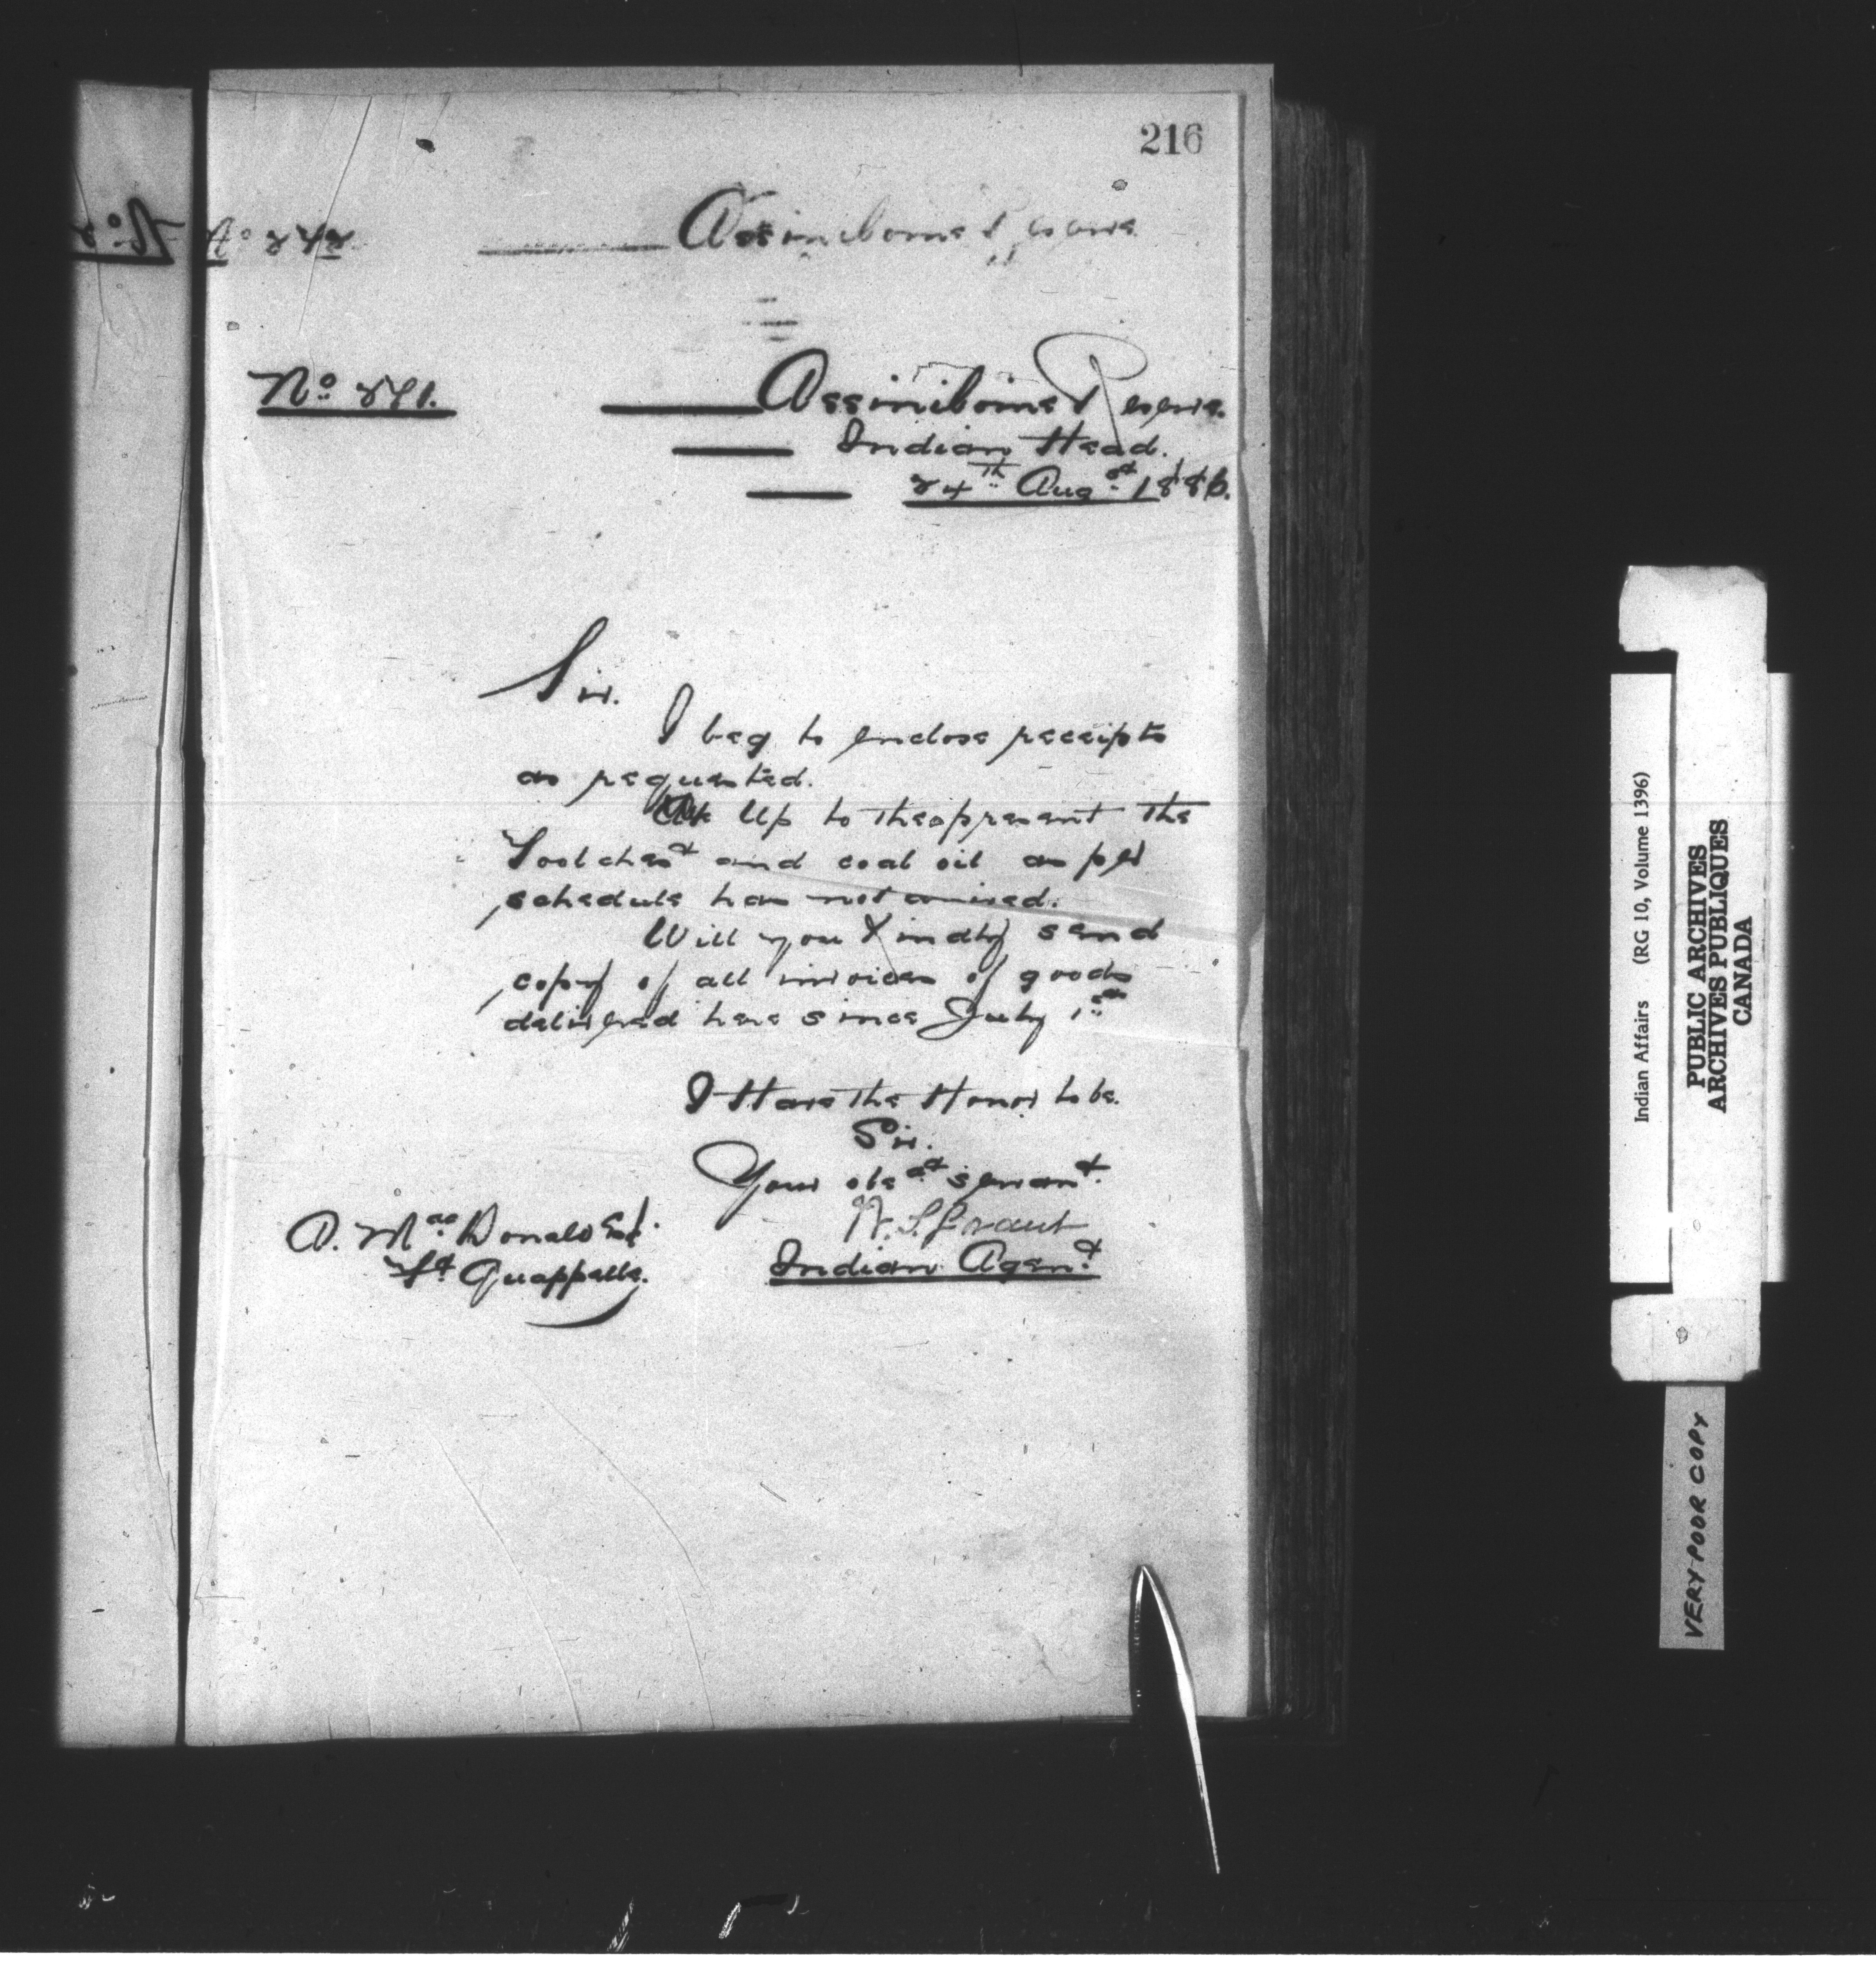 216
Nº 242 Assiniboine Reserve
Nº 241. Assiniboine Reserve.
Indian Head.
24th Augst 1886.
Sir.
I beg to enclose receipts
as requested.
Up to the present the
Tool chest and coal oil as per
schedule has not arrived.
Will you Kindly send
copy of all invoices of goods
delivered here since July 1st
I Have The Honor to be.
Sir.
Your obedt servant.
W. S. Grant
Indian Agent
A. MacDonald Esq.
Ft Quappelle.
Indian Affairs (RG 10, Volume 1396)
PUBLIC ARCHIVES
ARCHIVES PUBLIQUES
CANADA
VERY POOR COPY